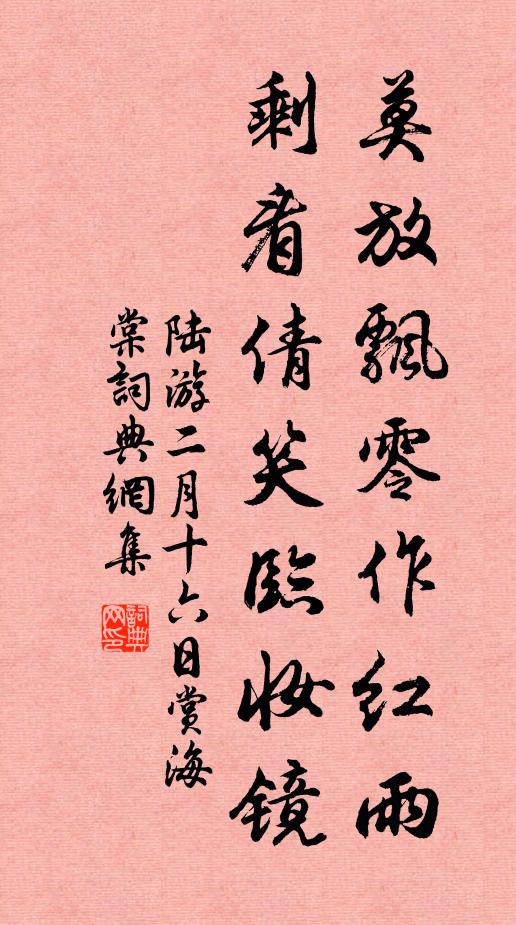 莫放飄零作红雨
剩看倩笑臨妝镜
陆游二月十六日賞海
棠詞典網集
詞典网印